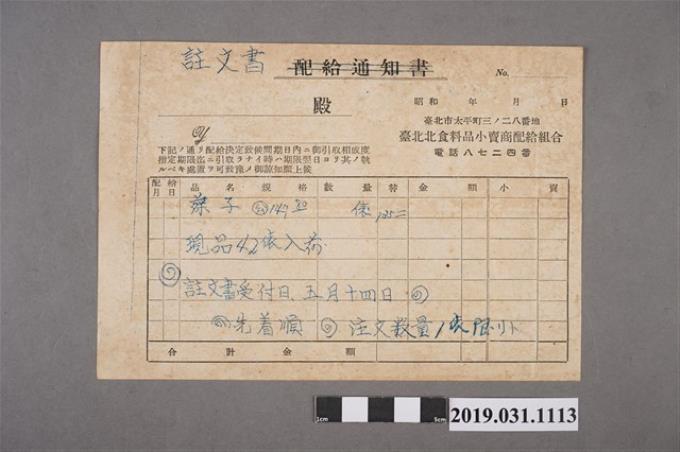 註文書 配給通知書 No.
殿 昭和 年 月 日
臺北市太平町三ノ二八番地
臺北北食料品小賣商配給組合
電話八七二四番
下記ノ通リ配給決定致候間期日內ニ御引取相成度
指定期限迄ニ引取ラナイ時ハ期限翌日ヨリ其ノ號
ルベキ處置ヲ可致豫メ御諒知願上候
配給月日 品名 規格 數量 特 金額 小賣
菓子
現品42俵入荷
註文書受付日 五月十四日
先着順 注文數量1俵限リ
合計金額
1cm 5cm
2019.031.1113